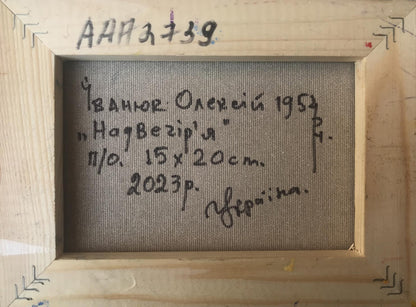 ААА3739
Іванюк Олексій
"Надвечір'я"
п/о. 15x20cm.
2023р.
Україна.